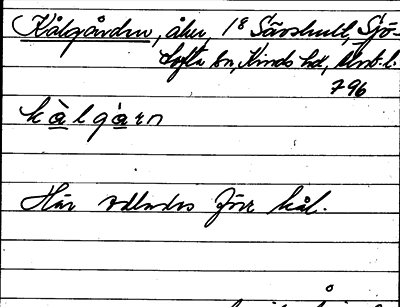 Kålgården, åker, 1⁸ Sävshult, Sjö-
tofta sn, Kinds hd, Älvsb. l.
796
kàlgàrn
Här odlades förr kål.